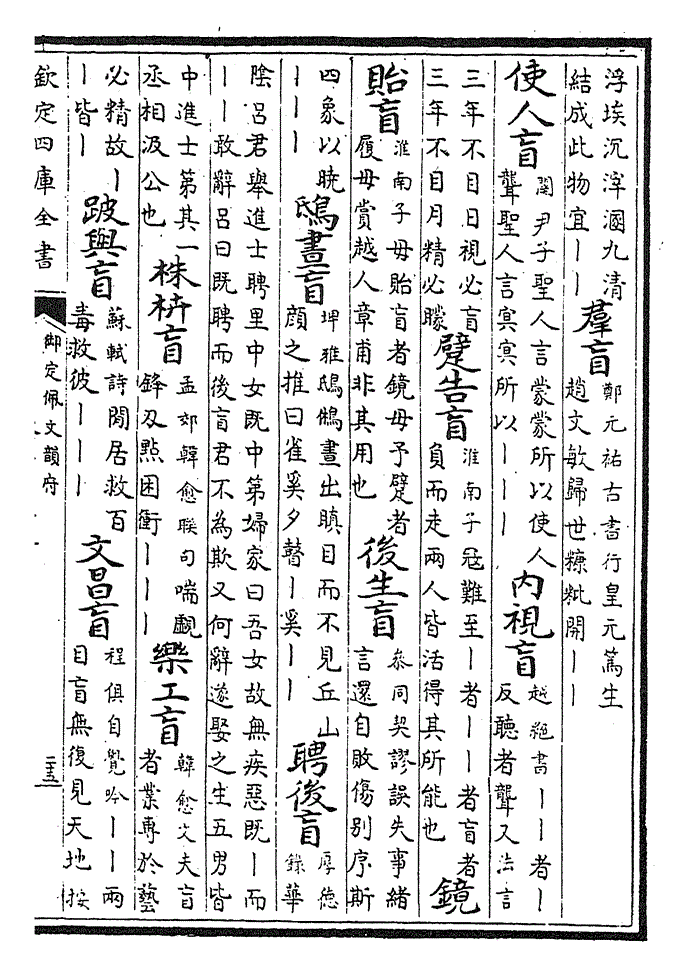 浮埃沉滓涸九清
結成此物宜丨丨
羣盲
鄭元祐古書行皇元篤生
趙文敏歸世糠粃開丨丨
使人盲
關尹子聖人言蒙蒙所以使人
聾聖人言冥冥所以丨丨丨
內視盲
越絶書丨丨者丨
反聽者聾又法言
三年不目日視必盲
三年不目月精必矇
躄告盲
淮南子寇難至丨者丨丨者盲者
負而走兩人皆活得其所能也
鏡
貽盲
淮南子毋貽盲者鏡毋予躄者
履毋賞越人章甫非其用也
後生盲
參同契謬誤失事緒
言還自敗傷別序斯
四象以曉
丨丨丨
鴟晝盲
埤雅鴟鵂晝出瞋目而不見丘山
顔之推曰雀奚夕瞽丨奚丨丨
聘後盲
厚德
錄華
陰呂君舉進士聘里中女既中第婦家曰吾女故無疾惡既丨而
丨丨敢辭呂曰既聘而後盲君不為欺又何辭遂娶之生五男皆
中進士第其一
丞相汲公也
株枿盲
孟郊韓愈聯句喘覷
鋒刃點困衝丨丨丨
樂工盲
韓愈文夫盲
者業專於藝
必精故丨
丨皆丨
跛與盲
蘇軾詩閒居救百
毒救彼丨丨丨
文昌盲
程俱自覺吟丨丨兩
目盲無復見天地按
欽定四庫全書
御定佩文韻府